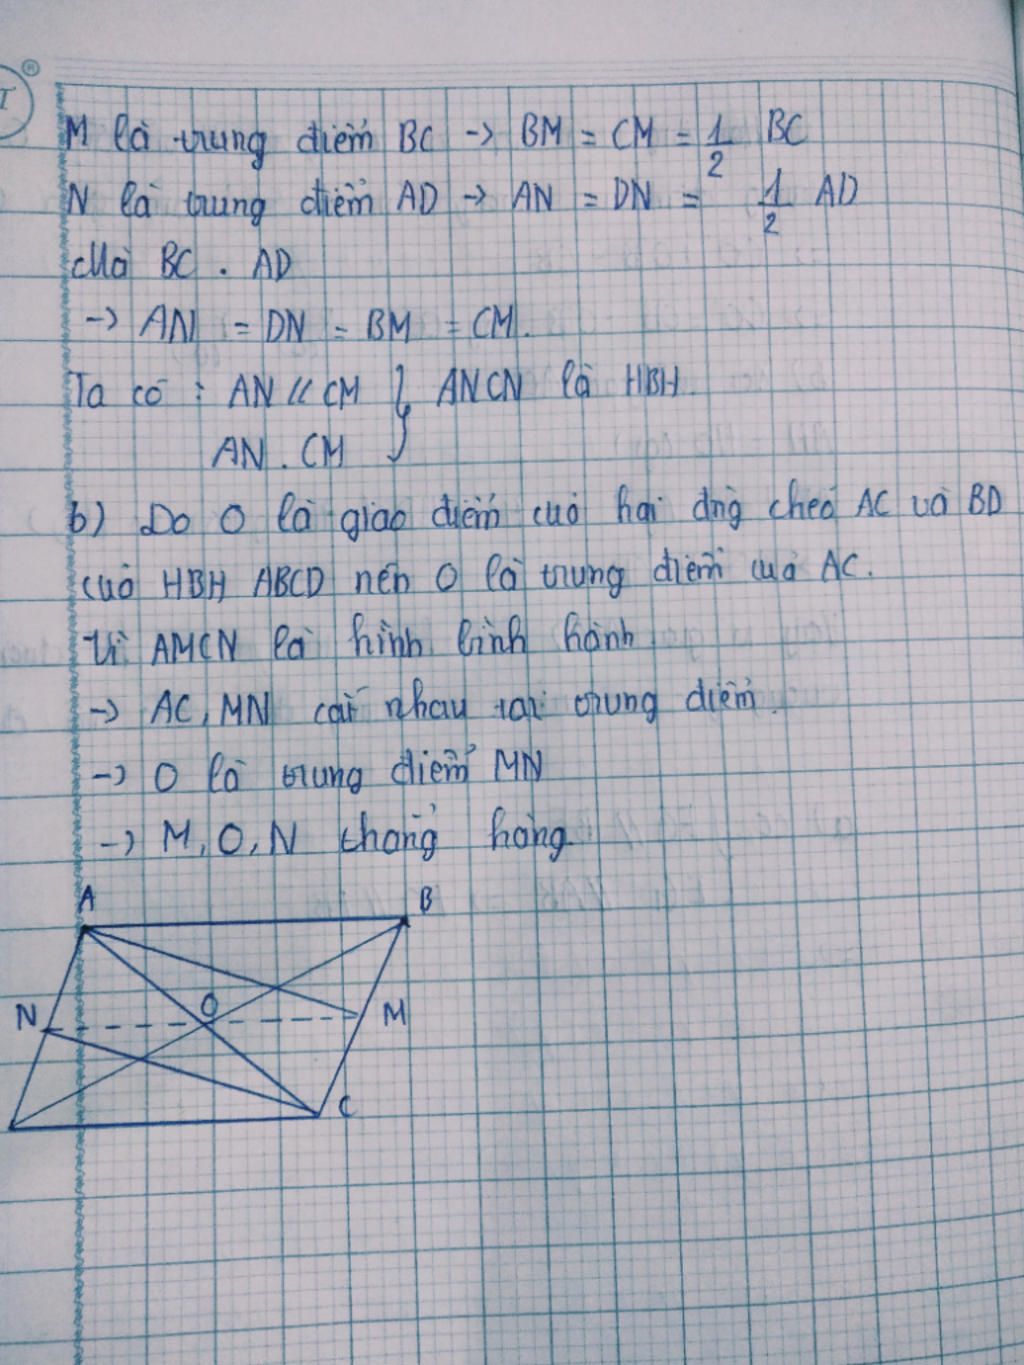 M là trung điểm BC -> BM = CM = 1/2 BC
N là trung điểm AD -> AN = DN = 1/2 AD
Mà BC = AD
-> AN = DN = BM = CM.
Ta có : AN // CM } ANCN là HBH
AN = CM
b) Do O là giao điểm của hai đng chéo AC và BD
của HBH ABCD nên O là trung điểm của AC.
Vì AMCN là hình bình hành
-> AC, MN cắt nhau tại trung điểm.
-> O là trung điểm MN
-> M, O, N thẳng hàng.
A B
N O M
C